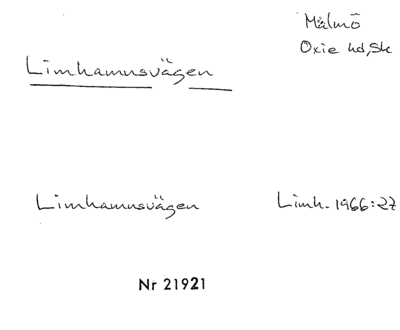 Malmö
Oxie hd, Sk
Limhamnsvägen
Limhamnsvägen Limh. 1966:27
Nr 21921